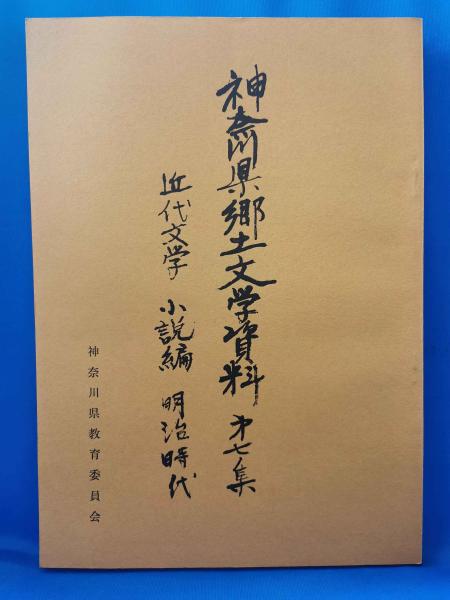 神奈川県郷土文学資料 第七集
近代文学 小説編 明治時代
神奈川県教育委員会